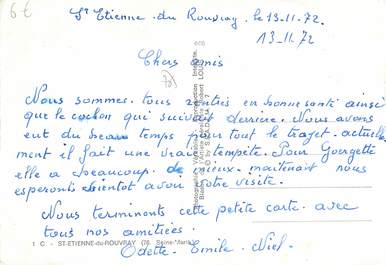 6€
St Etienne du Rouvray, le 13-11-72
13-11-72
Chers amis
Nous sommes tous rentrés en bonne santé ainsi
que le cochon qui suivait derrière. Nous avons
eut du beau temps pour tout le trajet. actuelle
ment il fait une vraie tempête. Pour Georgette
elle a beaucoup de mieux. maitenant nous
esperonts bientot avoir votre visite.
Nous terminonts cette petite carte avec
tous nos amitiées.
Odette. Emile. Niel.
1 C. - ST-ETIENNE-du-ROUVRAY (76. Seine-Marit.)